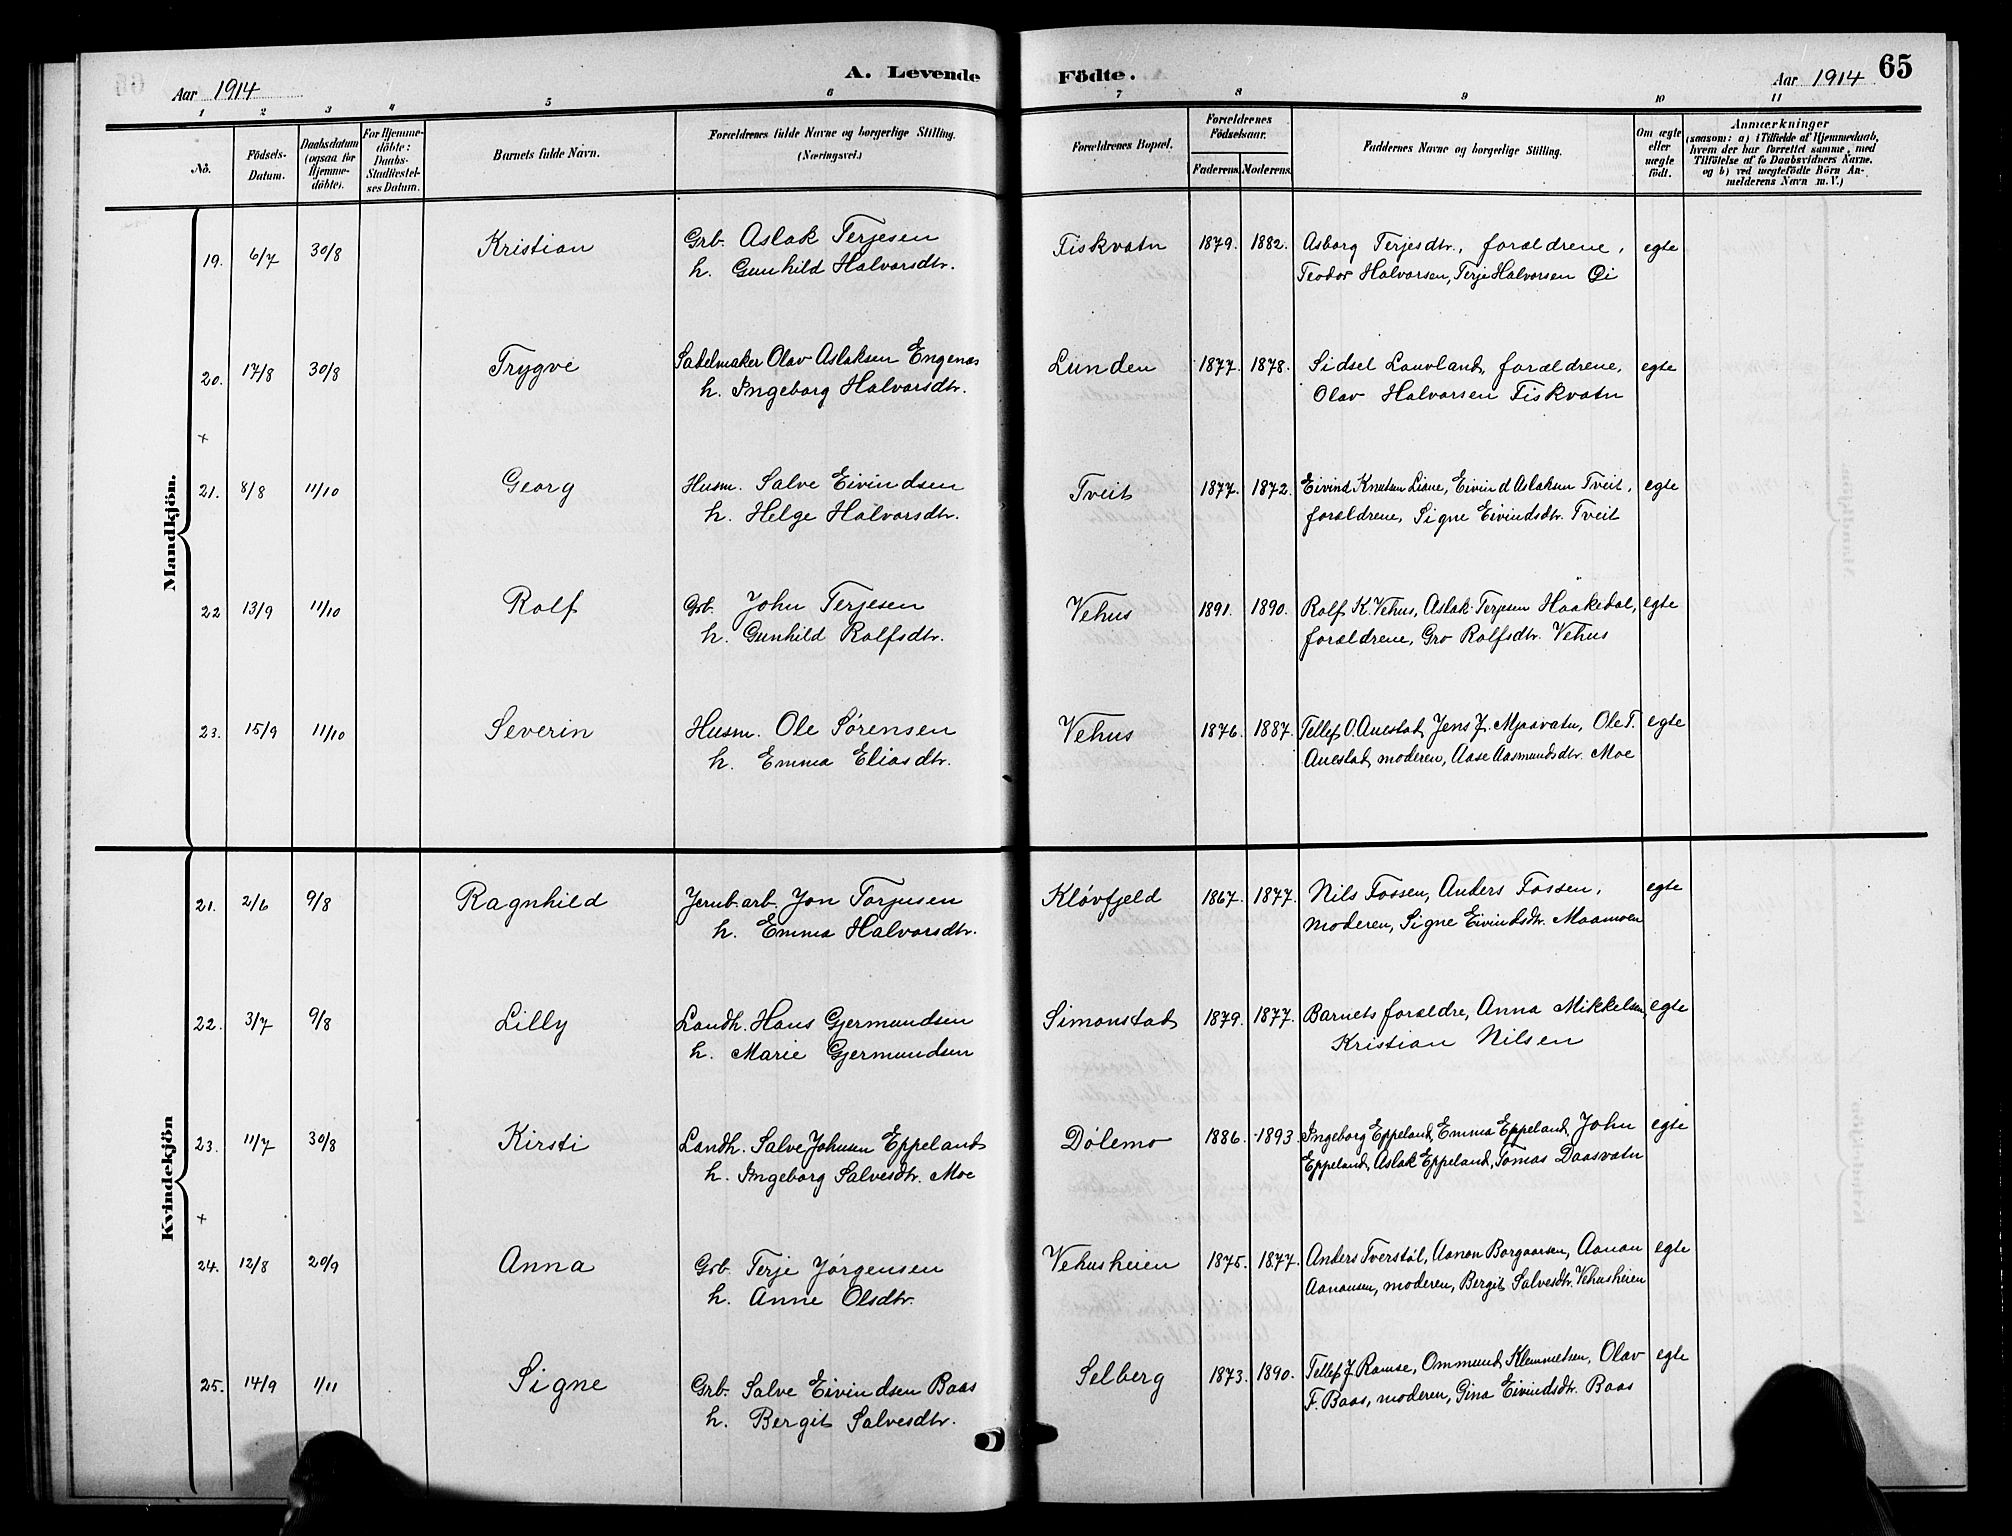 A. Levende Födte.
65
Aar 1914
Aar 1914
1 2 3 4 5 6 7 8 9 10 11
No.
Födsels-
Datum.
Daabsdatum
(ogsaa for
Hjemme-
döbte).
For Hjemme-
döbte:
Daabs-
Stadfæstel-
ses Datum.
Barnets fulde Navn.
Forældrenes fulde Navne og borgerlige Stilling.
(Næringsvei.)
Forældrenes Bopæl.
Forældrenes
Födselsaar.
Faderens. Moderens.
Faddernes Navne og borgerlige Stilling.
Om ægte
eller
uægte
födt.
Anmærkninger
(saasom: a) i Tilfælde af Hjemmedaab,
hvem der har forrettet samme, med
Tilföielse af to Daabsvidners Navne,
og b) ved uægtefödte Börn An-
melderens Navn m. V.)
Mandkjön.
19. 6/7 30/8 Kristian Grb. Aslak Terjesen Fiskvatn 1879. 1882. Asborg Terjesdtr., forældrene, egte
h. Gunhild Halvorsdtr. Teodor Halvorsen, Terje Halvorsen Øi
20. 17/8 30/8 Trygve Sadelmaker Olav Aslaksen Engenæs Lunden 1877. 1878. Sidsel Lauvland, forældrene, egte
h. Ingeborg Halvorsdtr. Olav Halvorsen Fiskvatn
+
21. 8/8 11/10 Georg Husm. Salve Eivindsen Tveit 1877. 1872. Eivind Knutsen Liane, Eivind Aslaksen Tveit, egte
h. Helge Halvorsdtr. forældrene, Signe Eivindsdtr. Tveit
22 13/9 11/10 Rolf Grb. John Terjesen Vehus 1891. 1890. Rolf K. Vehus, Aslak Terjesen Haakedal, egte
h. Gunhild Rolfsdtr. forældrene, Gro Rolfsdtr. Vehus
23. 15/9 11/10 Severin Husm. Ole Sørensen Vehus 1876. 1887. Tellef O. Auestad, Jens J. Mjaavatn, Ole T. egte
h. Emma Eliasdtr. Auestad, moderen, Aase Aasmundsdtr. Moe
Kvindekjön
21. 2/6 9/8 Ragnhild Jernb.arb. Jon Torjusen Kløvfjeld 1867. 1877. Nils Fossen, Anders Fossen, egte
h. Emma Halvorsdtr. moderen, Signe Eivindsdtr. Maamoen
22. 3/7 9/8 Lilly Landh. Hans Gjermundsen Simonstad 1879. 1877. Barnets forældre, Anna Mikkelsen, egte
h. Marie Gjermundsen Kristian Nilsen
23. 11/7 30/8 Kirsti Landh. Salve Johnsen Eppeland Dølemo 1886. 1893. Ingeborg Eppeland, Emma Eppeland, John egte
h. Ingeborg Salvesdtr. Moe Eppeland, Aslak Eppeland, Tomas Daasvatn
+
24. 12/8 20/9 Anna Grb. Terje Jørgensen Vehusheien 1875. 1877. Anders Tverstøl, Aanon Borgaarsen, Aanon egte
h. Anne Olsdtr. Aanonsen, moderen, Bergit Salvesdtr. Vehusheien
25. 14/9 1/11 Signe Grb. Salve Eivindsen Baas Selberg 1873. 1890. Tellef J. Ramse, Ommund Klemmetsen, Olav egte
h. Bergit Salvesdtr. F. Baas, moderen, Gina Eivindsdtr. Baas